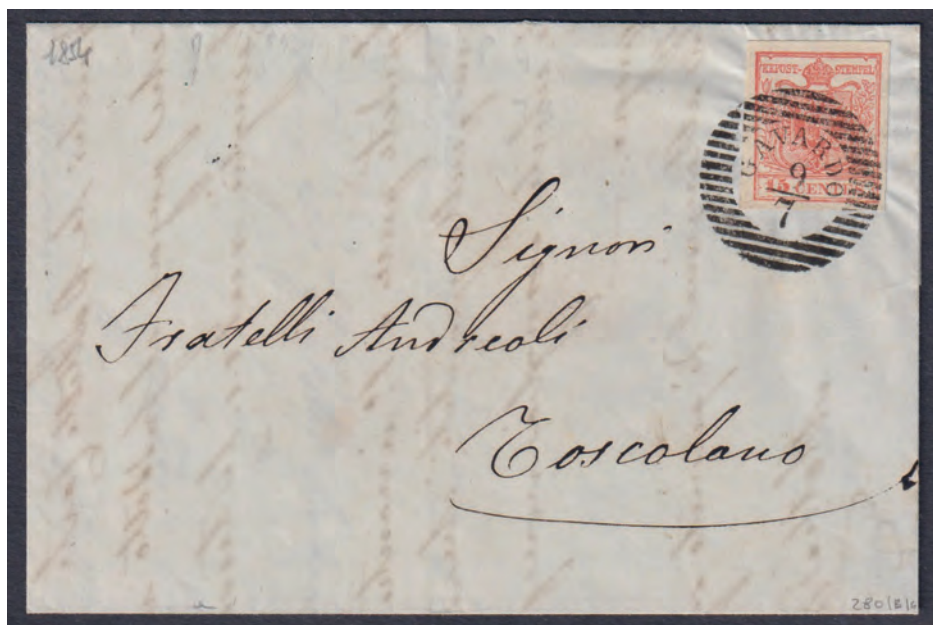 1854
KKPOST-STEMPEL
GAVARDO
9
7
15 CENT
Signori
Fratelli Andreoli
Toscolano